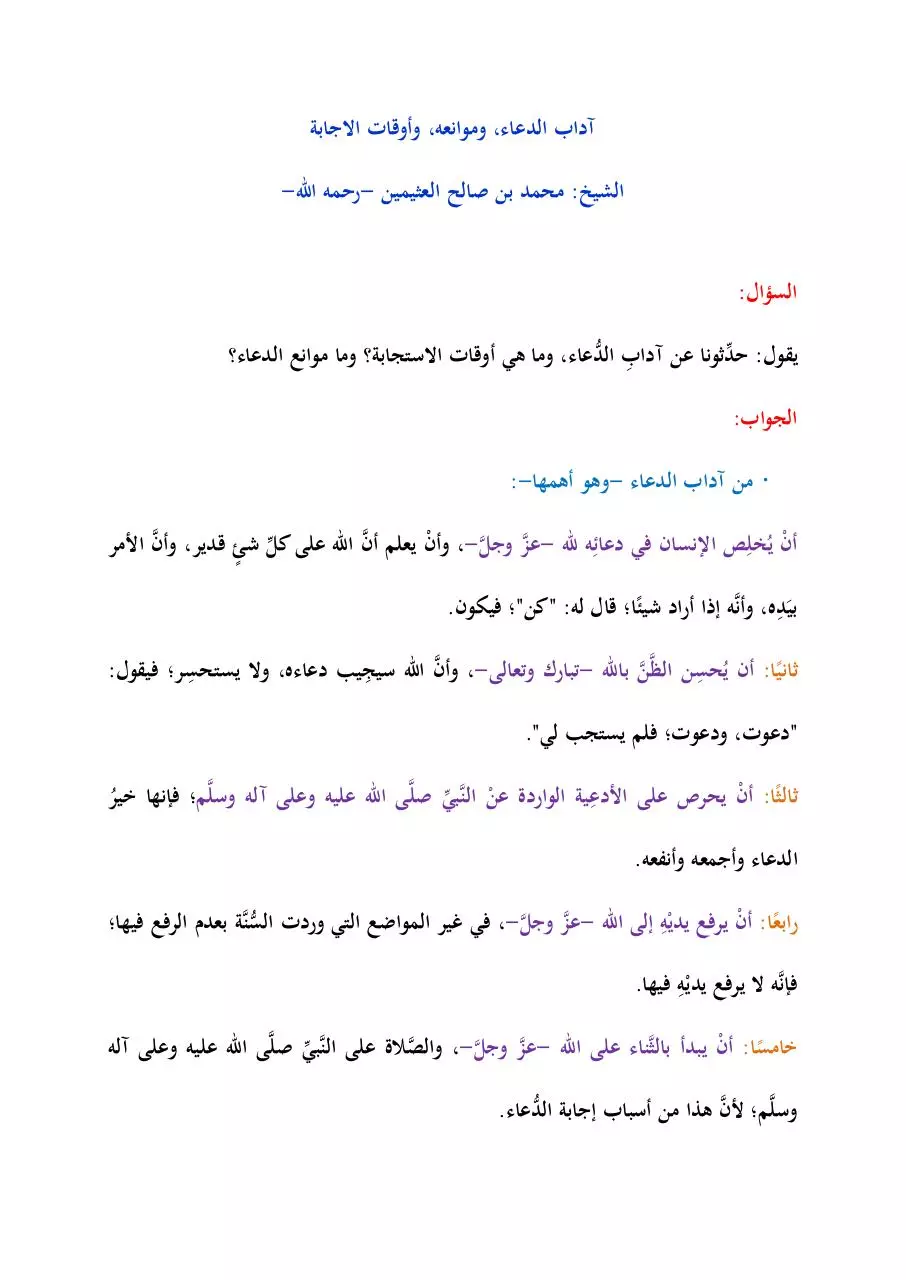 آداب الدعاء، وموانعه، وأوقات الاجابة
الشيخ: محمد بن صالح العثيمين –رحمه الله–
السؤال:
يقول: حدِّثونا عن آدابِ الدُّعاء، وما هي أوقات الاستجابة؟ وما موانع الدعاء؟
الجواب:
· من آداب الدعاء –وهو أهمها–:
أنْ يُخلِص الإنسان في دعائِه لله –عزَّ وجلَّ–، وأنْ يعلم أنَّ الله على كلِّ شئٍ قدير، وأنَّ الأمر
بيَدِه، وأنَّه إذا أراد شيئًا؛ قال له: "كن"؛ فيكون.
ثانيًا: أن يُحسِن الظَّنَّ بالله –تبارك وتعالى–، وأنَّ الله سيجِيب دعاءه، ولا يستحسِر؛ فيقول:
"دعوت، ودعوت؛ فلم يستجب لي".
ثالثًا: أنْ يحرص على الأدعِية الواردة عنْ النَّبيِّ صلَّى الله عليه وعلى آله وسلَّم؛ فإنها خيرُ
الدعاء وأجمعه وأنفعه.
رابعًا: أنْ يرفع يديْهِ إلى الله –عزَّ وجلَّ–، في غير المواضع التي وردت السُّنَّة بعدم الرفع فيها؛
فإنَّه لا يرفع يديْهِ فيها.
خامسًا: أنْ يبدأ بالثَّناء على الله –عزَّ وجلَّ–، والصَّلاة على النَّبيِّ صلَّى الله عليه وعلى آله
وسلَّم؛ لأنَّ هذا من أسباب إجابة الدُّعاء.